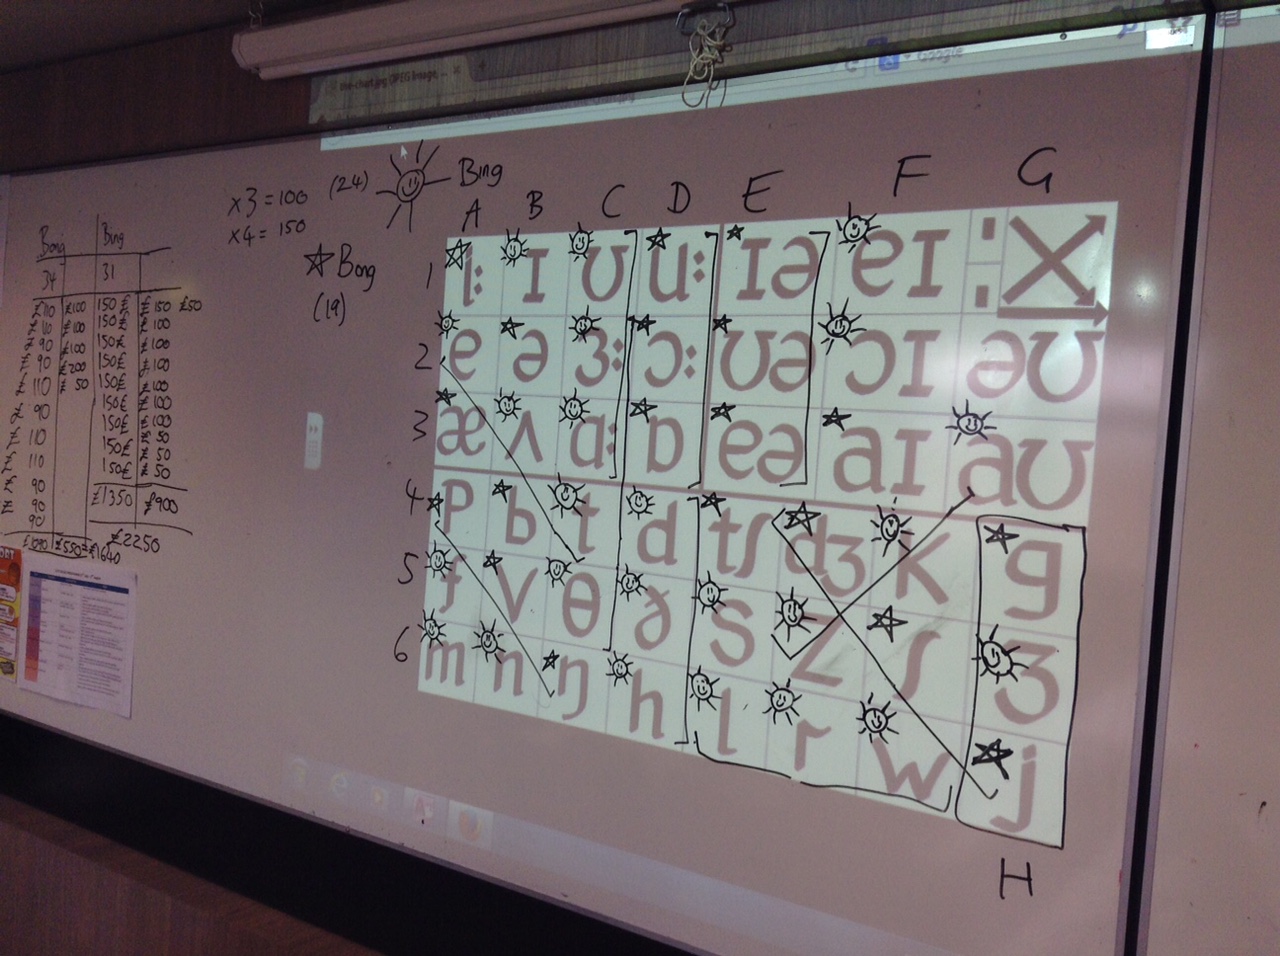 Google
x3 = 100 (24) Bing
x4 = 150
Bong
(19)
A B C D E F G
1 2 3 4 5 6
H
iː ɪ ʊ uː ɪə eɪ
e ə ɜː ɔː ʊə ɔɪ əʊ
æ ʌ ɑː ɒ eə aɪ aʊ
p b t d tʃ dʒ k g
f v θ ð s z ʃ ʒ
m n ŋ h l r w j
Bong Bing
34 31
£110 £100 150£ £150 £50
£100 150£ £100
90 £100 150£ £100
90 £200 150£ £100
110 £50 150£ £100
90 150£ £100
110 150£ £50
110 150£ £50
90 150£ £50
90 £1350 £900
90 £2250
£550 = £1640